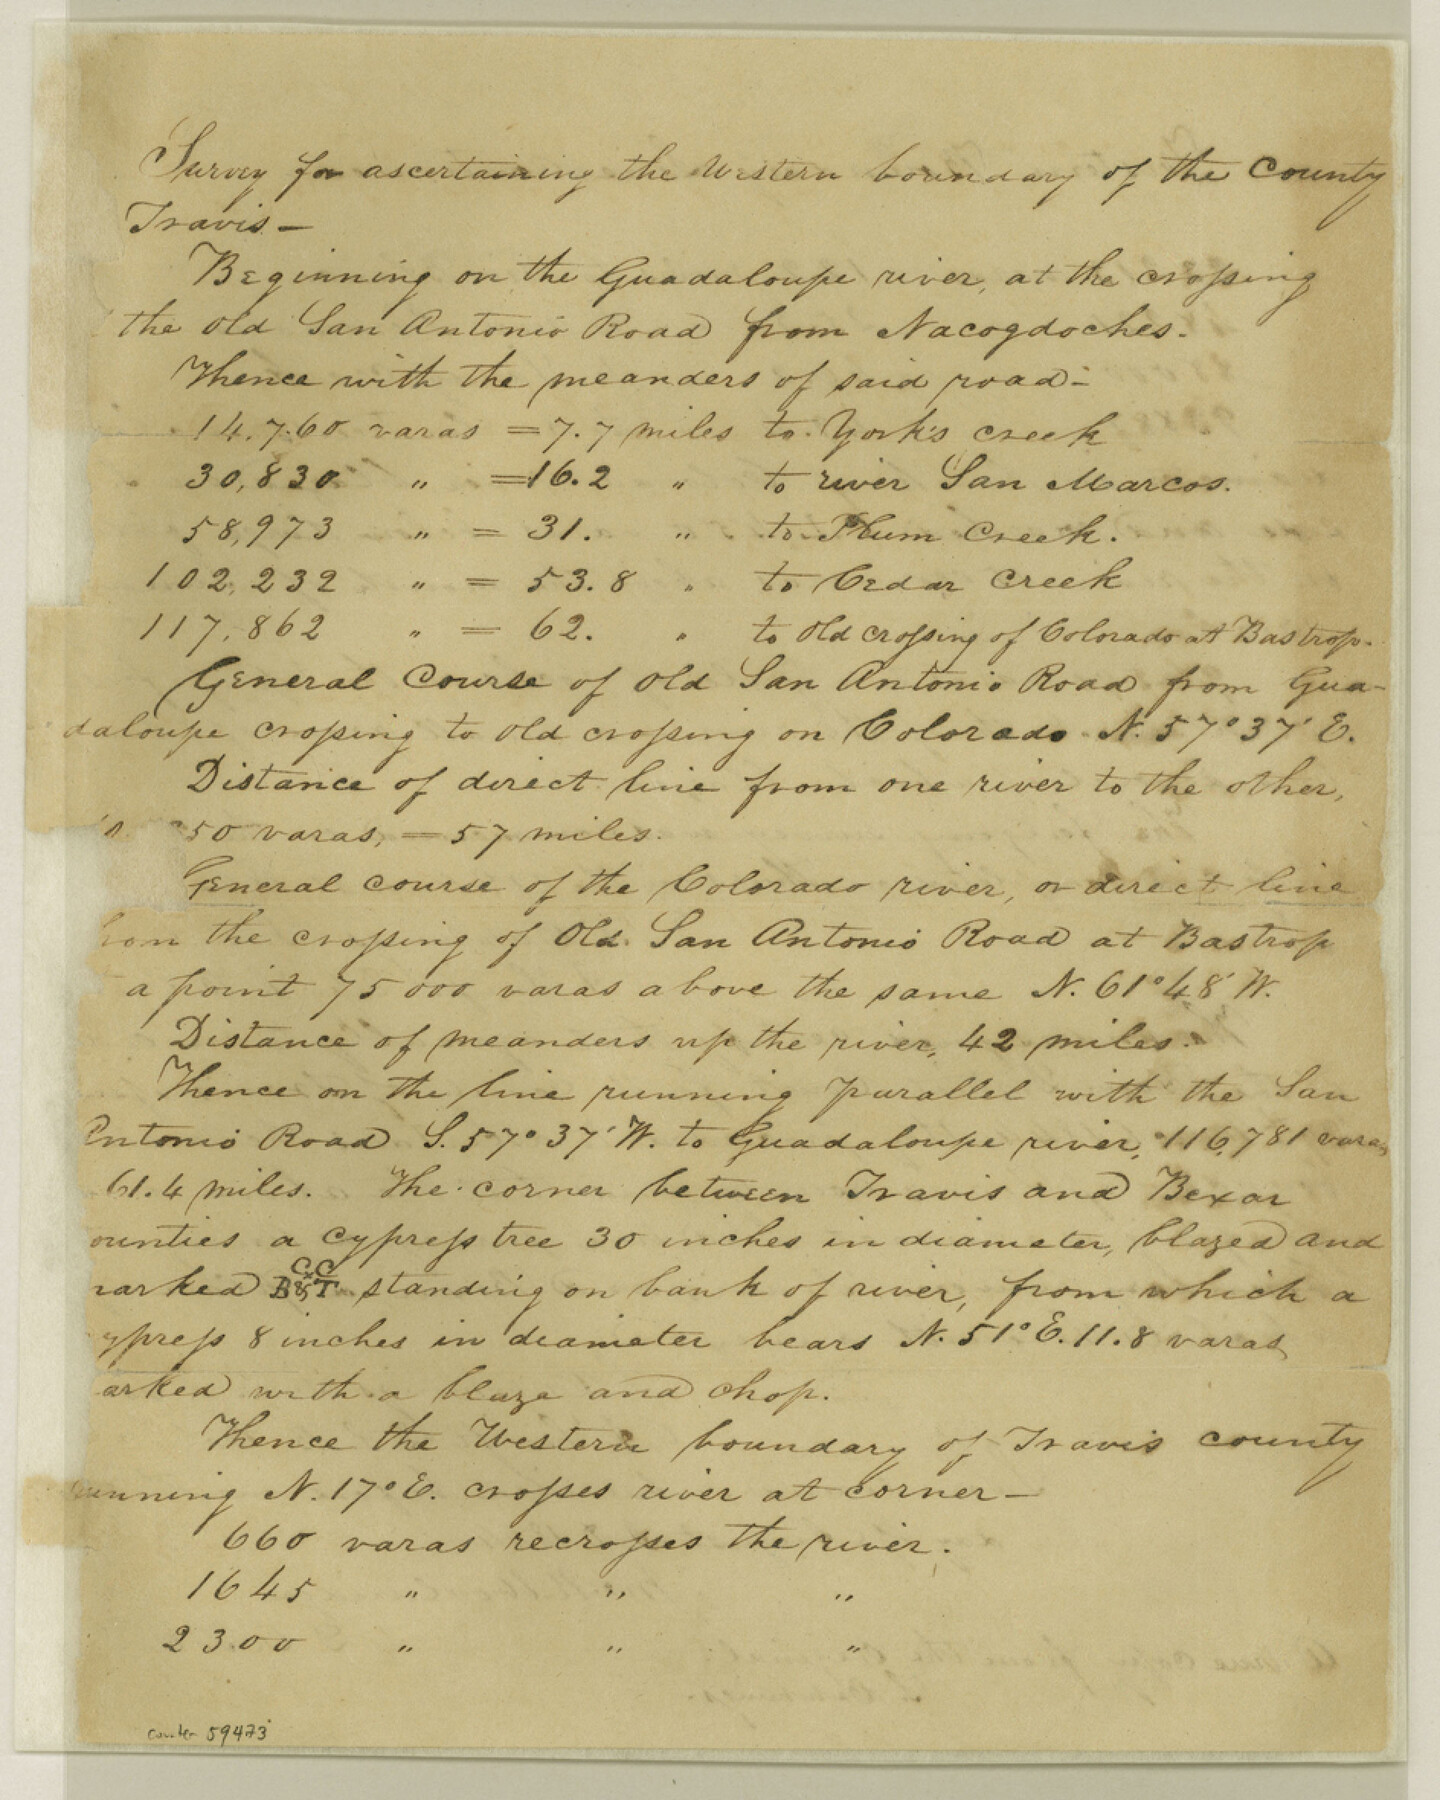 Survey for ascertaining the Western boundary of the County
Travis—
Beginning on the Guadaloupe river, at the crossing
the old San Antonio Road from Nacogdoches.
Thence with the meanders of said road—
14,760 varas = 7.7 miles to York's creek
30,830 " = 16.2 " to river San Marcos.
58,973 " = 31. " to Plum Creek.
102,232 " = 53.8 " to Cedar Creek
117,862 " = 62. " to old crossing of Colorado at Bastrop.
General Course of old San Antonio Road from Gua-
daloupe crossing to old crossing on Colorado N. 57° 37' E.
Distance of direct line from one river to the other,
50 varas, = 57 miles.
General course of the Colorado river, or direct line
rom the crossing of Old San Antonio Road at Bastrop
a point 75000 varas above the same N. 61° 48' W.
Distance of meanders up the river, 42 miles.
Thence on the line running parallel with the San
Antonio Road S. 57° 37' W. to Guadaloupe river, 116,781 varas
61.4 miles. The corner between Travis and Bexar
ounties a cypress tree 30 inches in diameter, blazed and
arked B&T CC standing on bank of river, from which a
ypress 8 inches in diameter bears N. 51° E. 11.8 varas
arked with a blaze and chop.
Thence the Western boundary of Travis county
unning N. 17° E. crosses river at corner—
660 varas recrosses the river.
1645 " " "
2300 " " "
counter 59473